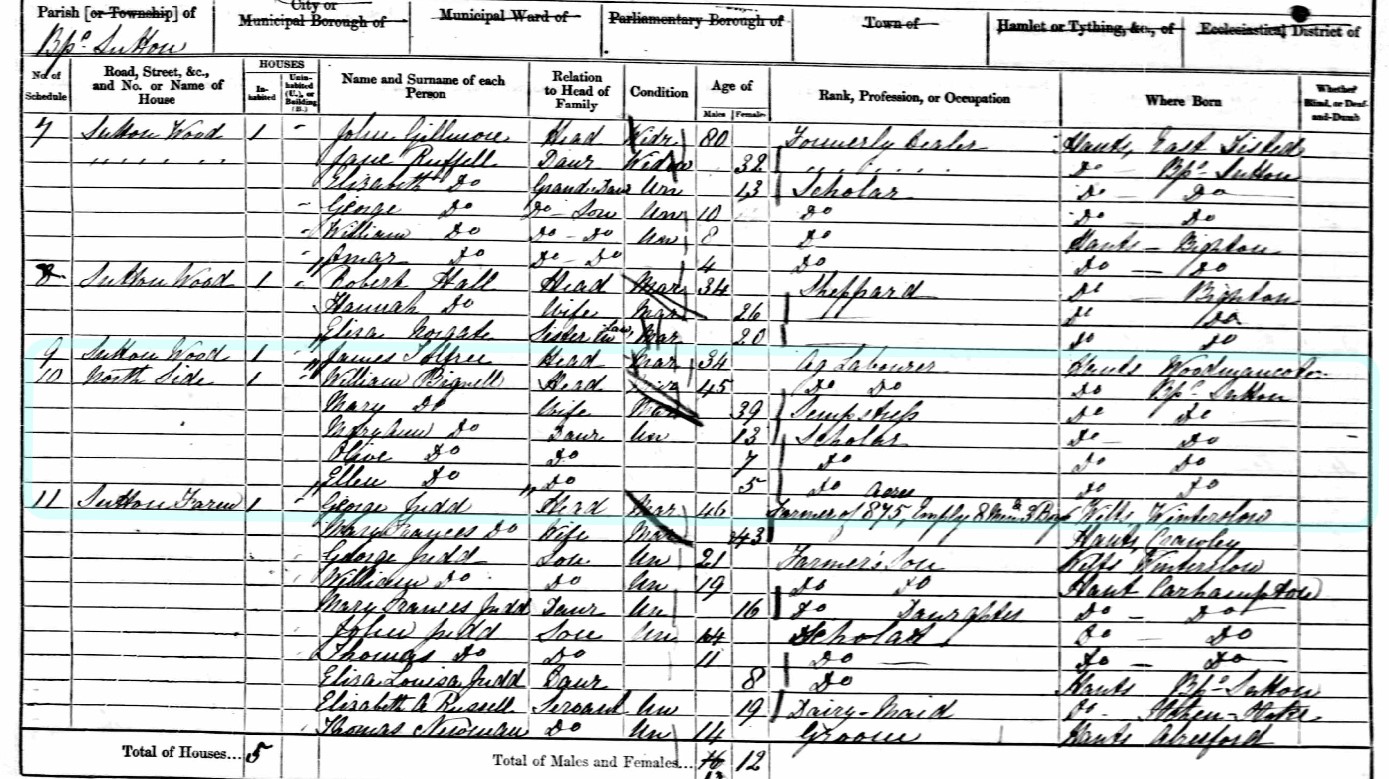 Parish [or Township] of City or Municipal Borough of Municipal Ward of Parliamentary Borough of Town of Hamlet or Tything, &c., of Ecclesiastical District of
Bps. Sutton
No. of Schedule Road, Street, &c., and No. or Name of House HOUSES Inhabited Uninhabited (U.), or Building (B.) Name and Surname of each Person Relation to Head of Family Condition Age of Males Females Rank, Profession, or Occupation Where Born Whether Blind, or Deaf-and-Dumb
7 Sutton Wood 1 John Gillmore Head Widr 80 Formerly Dealer Hants, East Tisted
" " " " " Jane Russell Daur Widow 32 Do Bps. Sutton
Elizabeth Do Grand-Daur Un 13 Scholar Do Do
George Do Do - Son Un 10 Do Do Do
William Do Do - Do Un 8 Do Hants - Bighton
Do Do - Do 4 Do Do - Do
8 Sutton Wood 1 Robert Hall Head Mar 34 Sheppard Do Bighton
Hannah Do Wife Mar 26 Do Do
Eliza Norgate Sister in Law Mar 20 Do Do
9 Sutton Wood 1 James Head Mar 34 Ag Labourer Hants
10 North Side 1 William Bignell Head 45 Do Do Do Bps. Sutton
Mary Do Wife Mar 39 Sempstress Do Do
Mary Ann Do Daur Un 13 Scholar Do - Do
Olive Do Do 7 Do Do Do
Ellen Do Do 5 Do Do Do
11 Sutton Farm 1 George Judd Head Mar 46 Farmer of 875 Acres, Employ 8 Men 3 Boys Wilts, Winterslow
Mary Frances Do Wife Mar 43 Hants, Crawley
George Judd Son Un 21 Farmer's Son Wilts Winterslow
William Do Do Un 19 Do Do Hant
Mary Frances Judd Daur Un 16 Do Daughter Do - Do
John Judd Son Un 14 Scholar Do - Do
Thomas Do Do 11 Do Do - Do
Eliza Louisa Judd Daur 8 Do Hants Bps. Sutton
Elizabeth A Russell Servant Un 19 Dairy-Maid Do-
Thomas Newman Do Un 14 Groom Hants Alresford
Total of Houses... 5 Total of Males and Females... 12